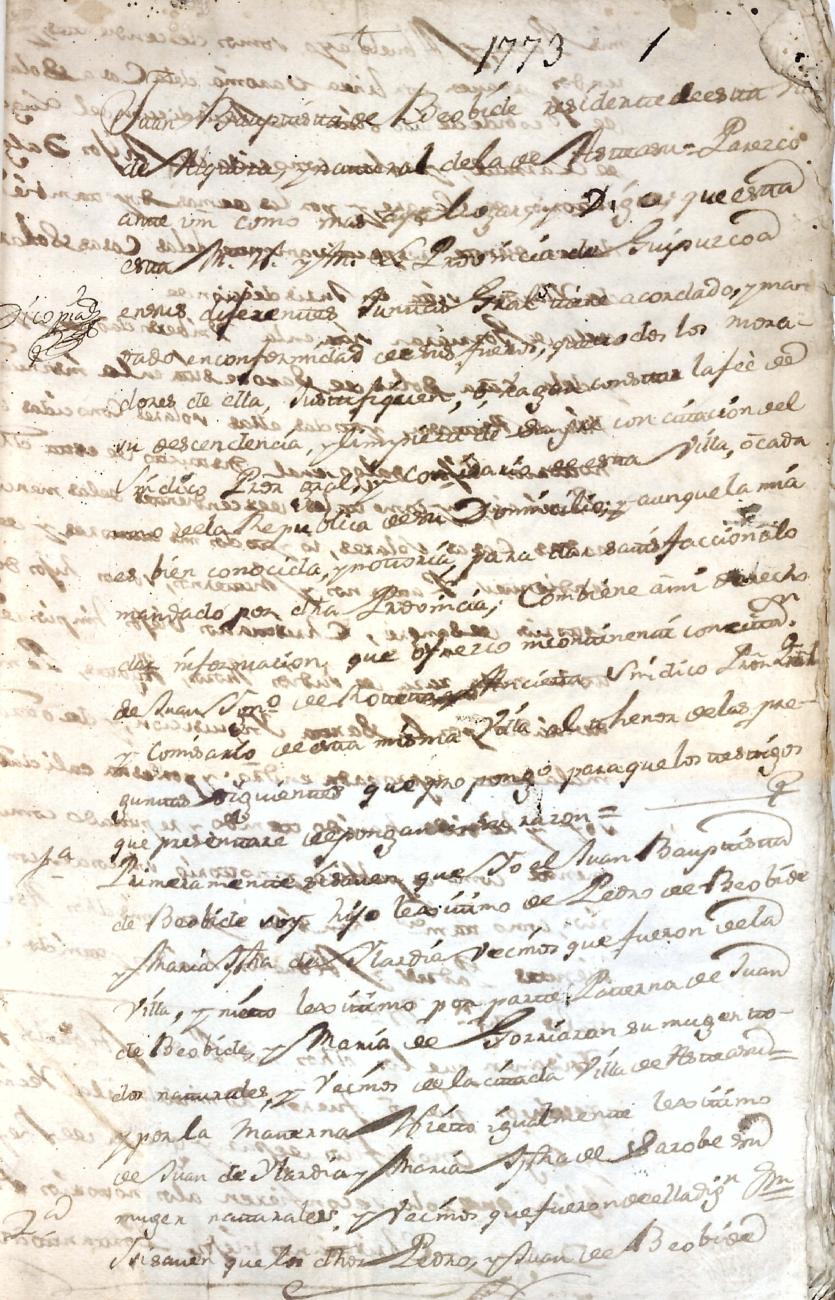 1773 1
Juan Bauptista de Beobide residente en esta
de y natural de la de Asteasu = Parezco
ante vm como mas aya lugar y Digo, que esta
esta M. N. y M. L. Provincia de Guipuzcoa
en sus diferentes Juntas Grales tiene acordado, y man
dado en conformidad de sus fueros, que todos los mora-
dores de ella, Justifiquen, ó hagan constar la feè de
su descendencia, y limpieza de sangre con citacion del
Sindico Pror gral, y Comisario de esta Villa, ò cada
uno de la Republica de su Domicilio; y aunque la mia
es bien conocida, y notoria, para dar satisfaccion alo
mandado por dha Provincia; Combiene à mi derecho
dar informacion, que ofrezco incontinenti con citan.
de Juan Ignº de Anchieta Sindico Pror Gral
y Comisario de esta misma Villa al thenor de las pre-
guntas siguientes que propongo para que los testigos
que presentare depongan en su razon =
1ª Primeramente si saven que Yo el Juan Bauptista
de Beobide soy hijo lexitimo de Pedro de Beobide
y Maria Jpha de Ylardia vecinos que fueron de la
Villa, y nieto lexitimo por parte Paterna de Juan
de Beobide, y Maria de Gorriaran su muger to-
dos naturales, y Vecinos de la citada Villa de Asteasu =
y por la Materna Nieto igualmente lexitimo
de Juan de Ylardia y Maria Jpha de Sarobe su
muger naturales, y Vecinos que fueron de ella
2ª Si saven que los dhos Pedro, y Juan de Beobide